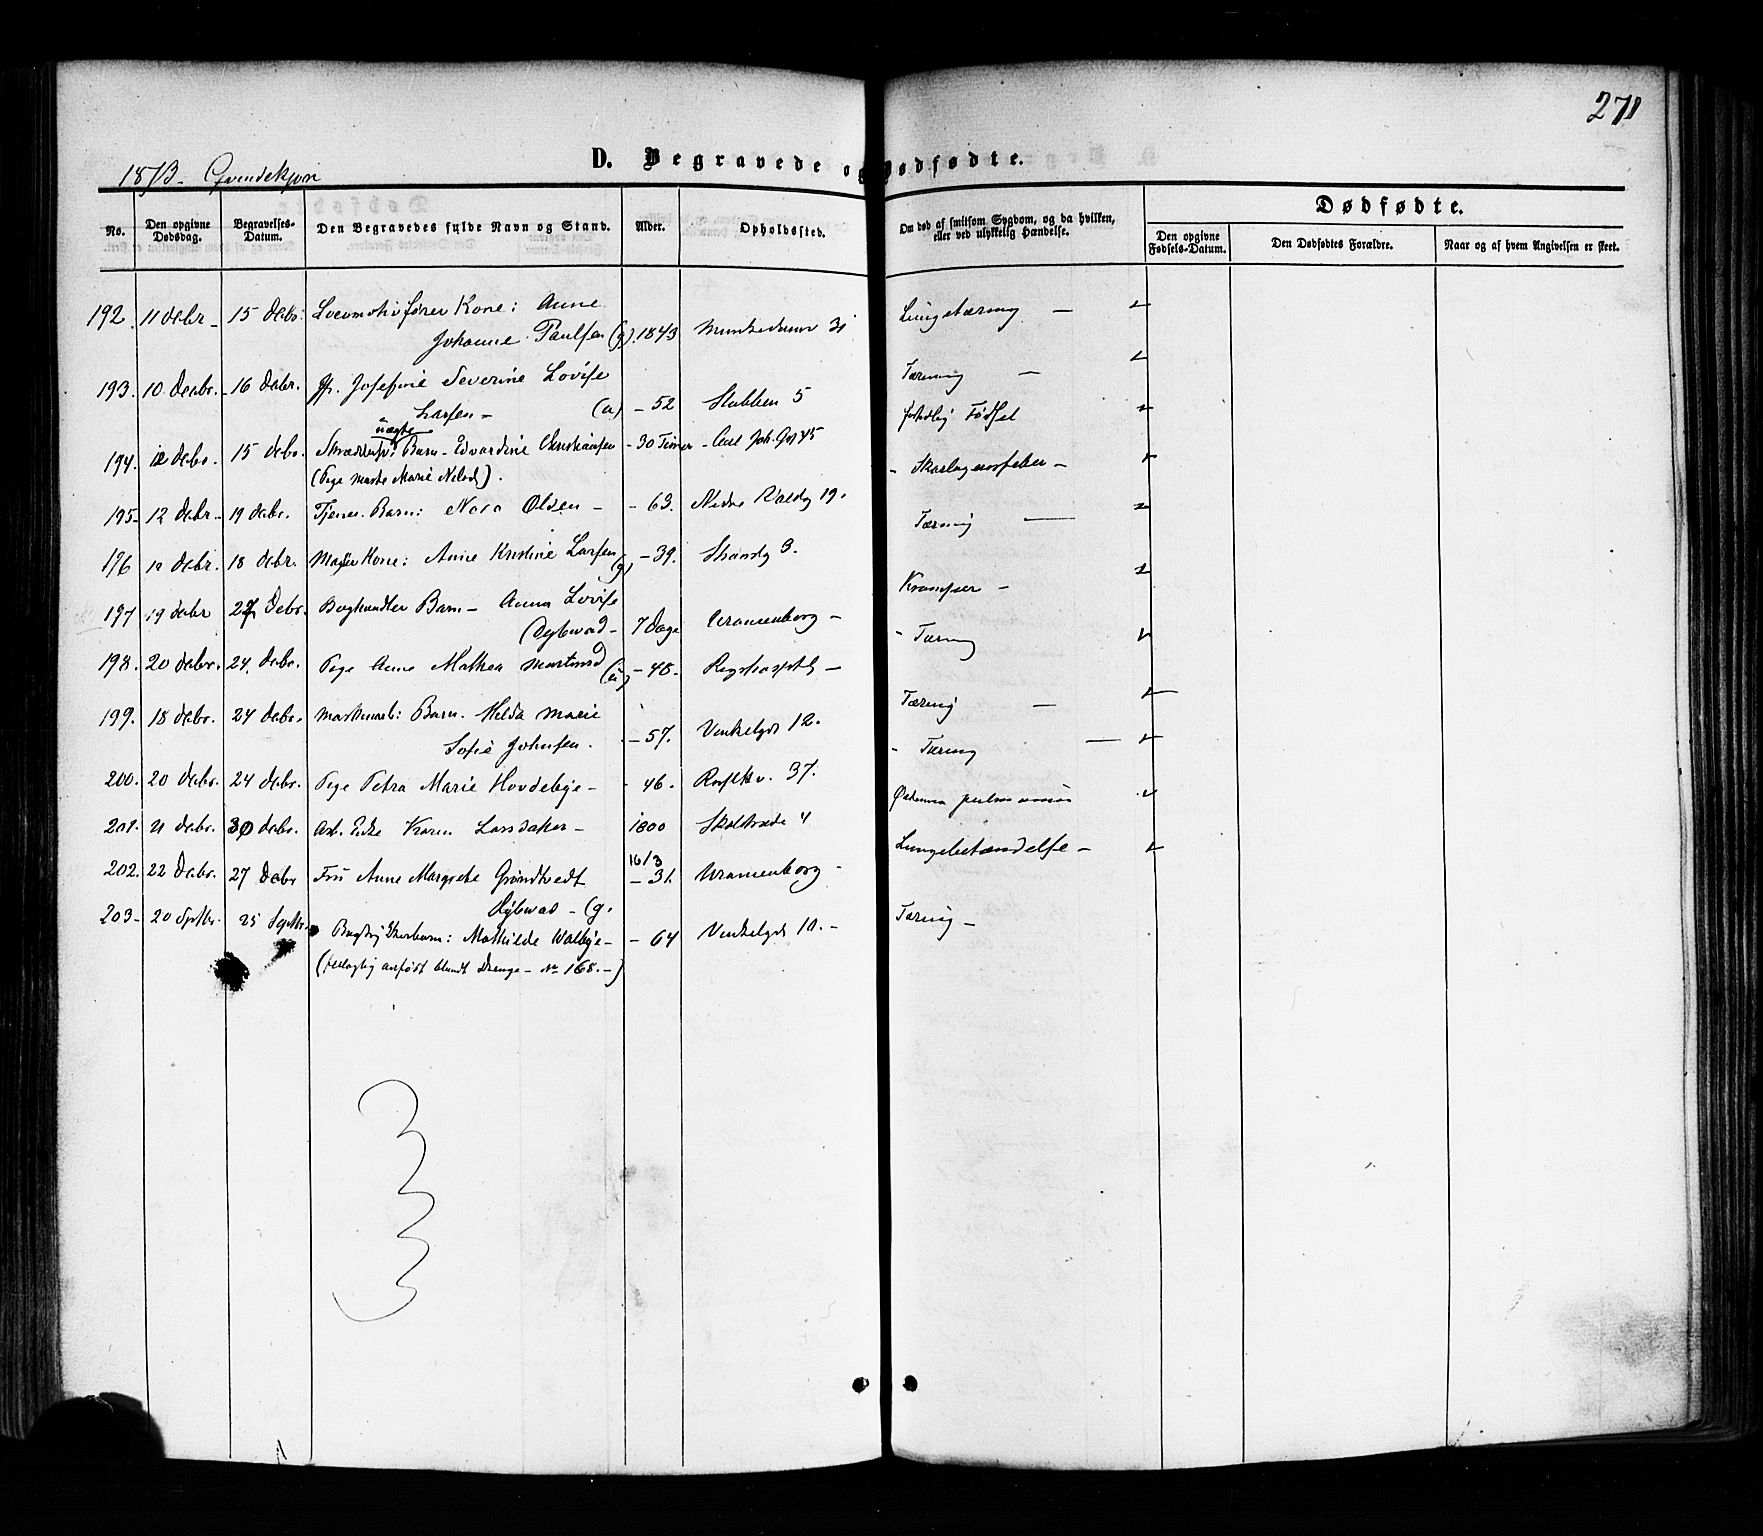 271
1873. Qvindekjøn
D. Begravede og Dødfødte.
No. Den opgivne Dødsdag. Begravelses-Datum. Den Begravedes fulde Navn og Stand. Alder. Opholdssted. Om død af smitsom Sygdom, og da hvilken, eller ved ulykkelig Hændelse. Dødfødte.
Den opgivne Fødsels-Datum. Den Dødfødtes Forældre. Naar og af hvem Angivelsen er skeet.
192. 11 debr 15 debr. Locomotivfører Kone: Anne Lungetæring –
Johanne Paulsen (g). 1843 Munkedamv 31
193. 10 decbr. 16 debr. Jfr. Josefine Severine Lovise Tæring –
Larsen – (u) – 52 Stubben 5
uægte
194. 12 debr. 15 debr. Barn – Edvardine Christiansen – 30 Timer – Carl Joh. Gd 45 Fødsel
(Pige Marie
195 – 12 debr – 19 debr. Tjener. Barn: Nora Olsen – – 63. Nedre 19. – Skarlagensfeber –
196 12 debr. 18 debr. Kone: Anne Kristine Larsen (g) – 39. Strandg 3. Tæring –
197 19 debr 27 Debr. Boghandler Barn – Anna Lovise Kramper –
Dybwad – 7 Dage Uranienborg –
198. 20 debr. 24. debr. Pige Anne Mathea (u) – 48. Rigshospitl – – Tæring
199. 18 debr. 24 debr. Barn. Hilda Marie Tæring –
Sofie Johnsen. – 57. Vinkelgd 12.
200. 20 debr. 24 debr. Pige Petra Marie Hovdebye – – 46. 37. – Tæring –
201. 21 debr. 30 debr. Arb. Enke Karen – 1800 Skolstræde 4 Ødema pulmonum
202. 22 Debr. 27 Debr Fru Anne Margrete Grøndtvedt 16/3 – 31. Uranienborg – Lungebetændelse –
Dybwad – (g.
203 – 20 Sptbr. 25 Septbr. Mathilde Walbye – – 64 Vinkelgd 10. – Tæring –
(feilagtig anført blandt Drenge – No 168. –)